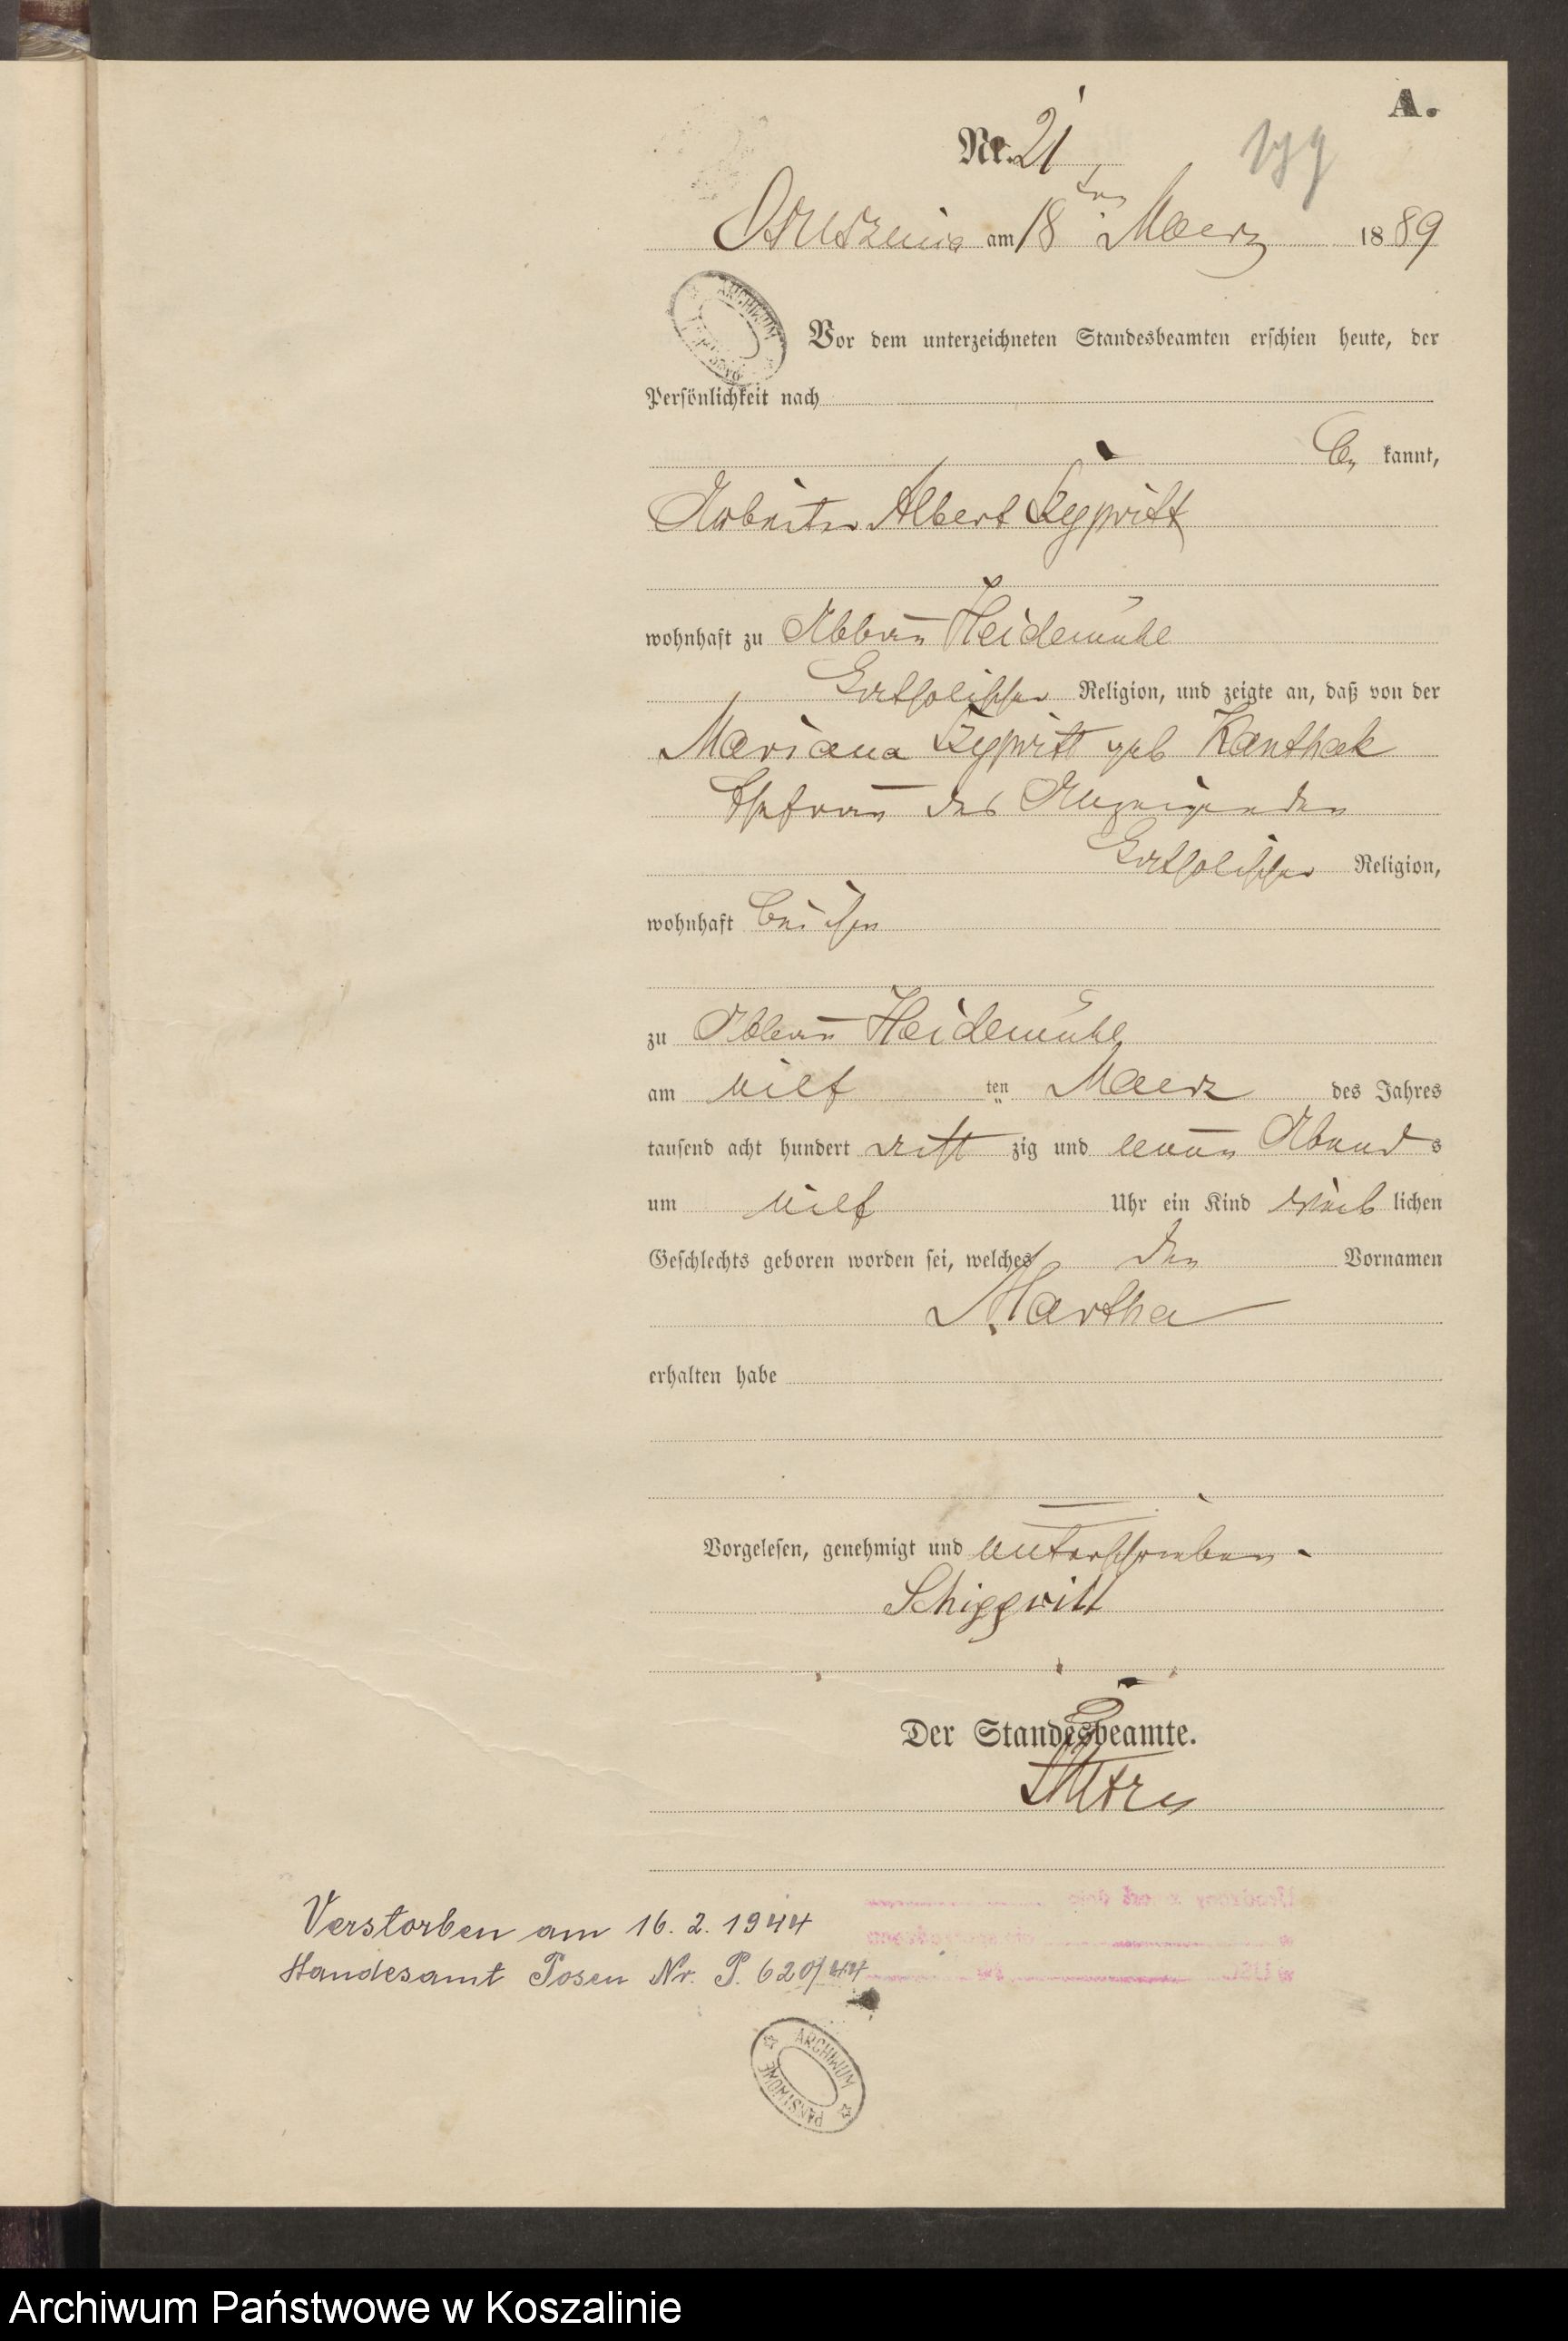 A.
Nr. 21
am 18ten Maerz 1889
Vor dem unterzeichneten Standesbeamten erschien heute, der
Persönlichkeit nach
be kannt,
Arbeiter Albert
wohnhaft zu Abbau Heidemühl
katholischer Religion, und zeigte an, daß von der
Mariana geb Kanthak
Ehefrau des Anzeigenden
katholischer Religion,
wohnhaft bei ihm
zu Abbau Heidemühl
am eilf ten Maerz des Jahres
tausend acht hundert acht zig und neun Abend s
um eilf Uhr ein Kind weib lichen
Geschlechts geboren worden sei, welches den Vornamen
Martha
erhalten habe
Vorgelesen, genehmigt und unterschrieben
Schippritt
Der Standesbeamte.
Verstorben am 16. 2. 1944
Standesamt Posen Nr. P. 620/44
ARCHIWUM PAŃSTWOWE
Archiwum Państwowe w Koszalinie